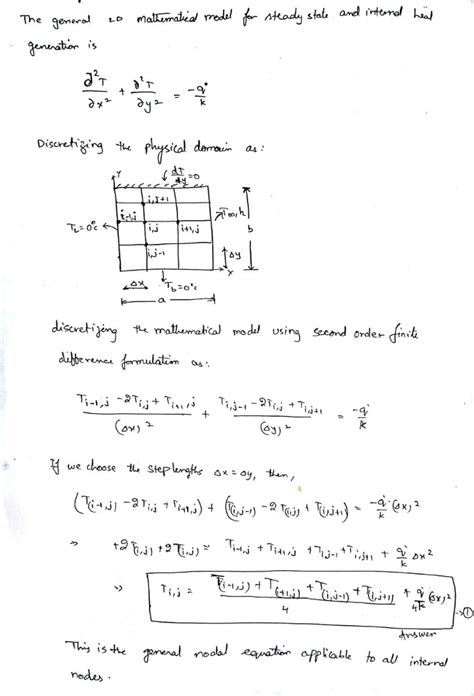 The general 2D mathematical model for steady state and internal heat
generation is
∂²T/∂x² + ∂²T/∂y² = -q̇/k
Discretizing the physical domain as:
Y
dT/dy = 0
i,j+1
i-1,j
T∞,h
T_L=0°c
i,j
i+1,j
b
i,j-1
Δy
x
Δx
T_b=0°c
a
discretizing the mathematical model using second order finite
difference formulation as:
(T_{i-1,j} - 2T_{i,j} + T_{i+1,j})/(Δx)² + (T_{i,j-1} - 2T_{i,j} + T_{i,j+1})/(Δy)² = -q̇/k
If we choose the steplengths Δx = Δy, then,
(T_(i-1,j) - 2T_{i,j} + T_{i+1,j}) + (T_(i,j-1) - 2T_(i,j) + T_(i,j+1)) = -q̇/k (Δx)²
⇒ +2T_(i,j) + 2T_(i,j) = T_{i-1,j} + T_{i+1,j} + T_{i,j-1} + T_{i,j+1} + q̇/k Δx²
⇒ T_{i,j} = (T_(i-1,j) + T_(i+1,j) + T_(i,j-1) + T_(i,j+1))/4 + q̇/4k (Δx)² →①
Answer
This is the general nodal equation applicable to all internal
nodes.